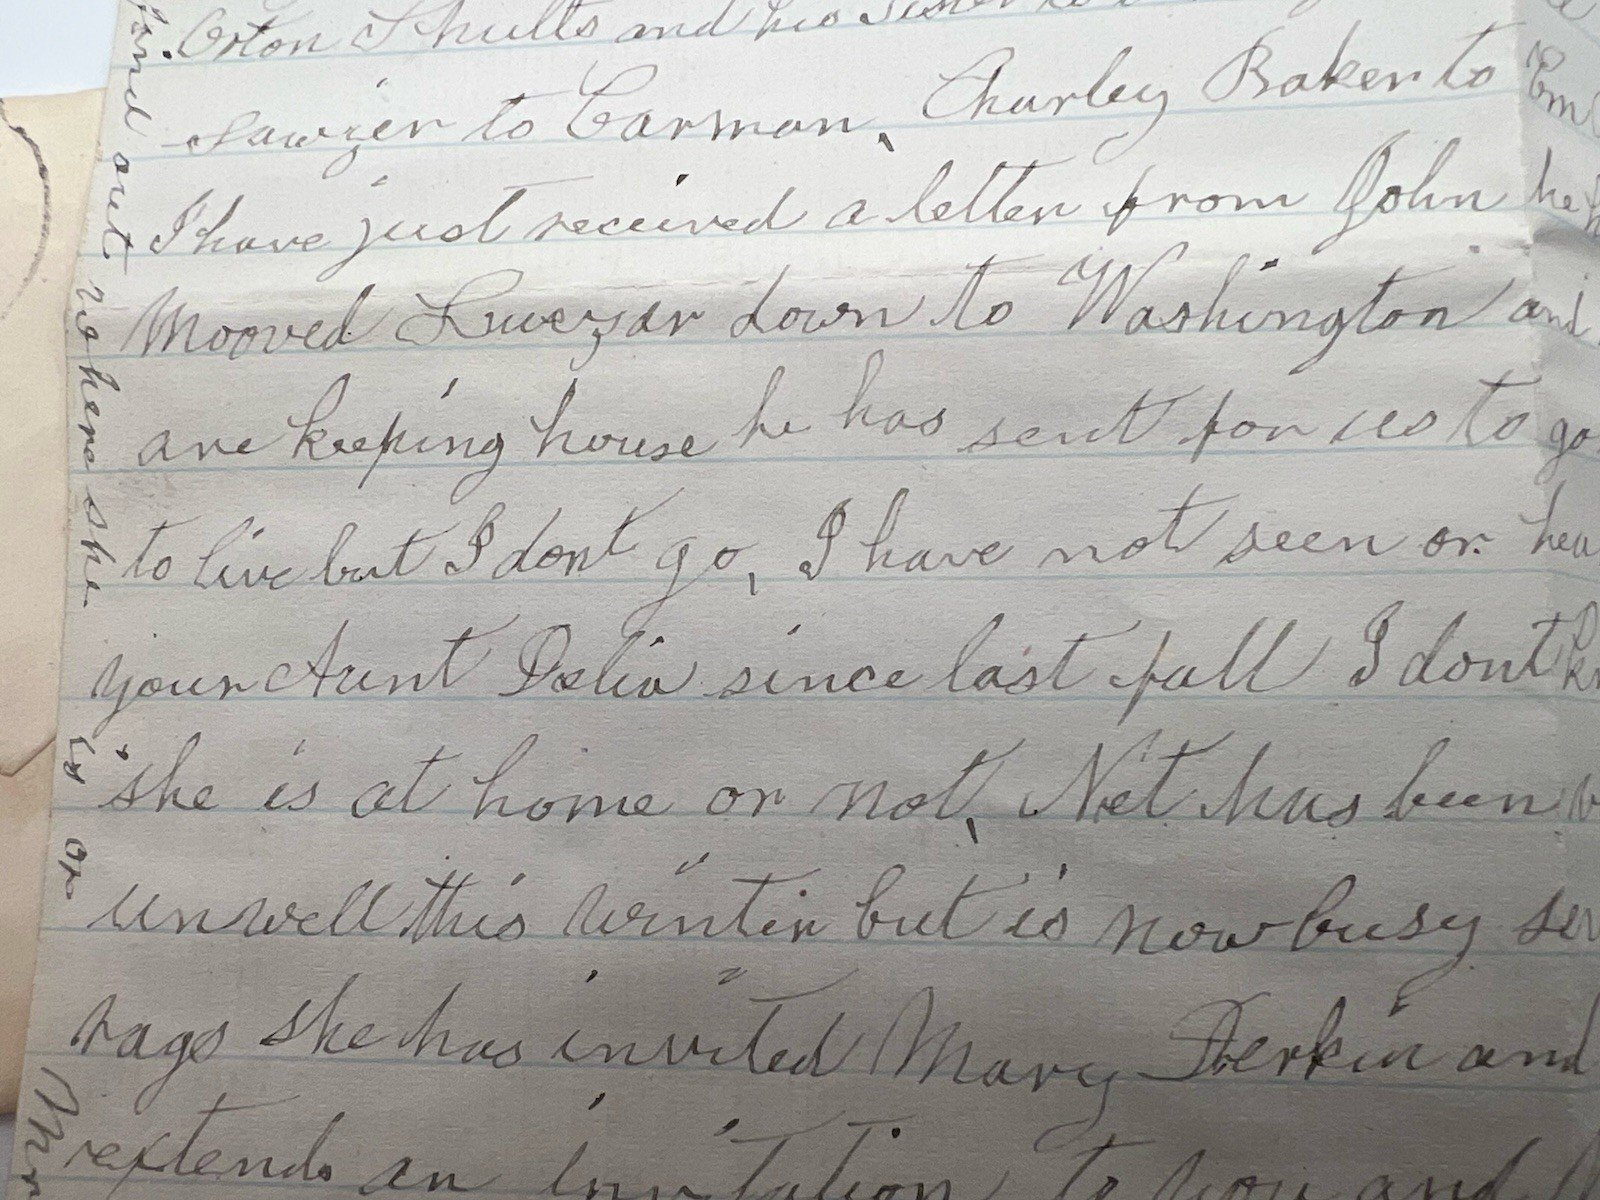 Orton Shults and his Sister
Sawyer to Carman, Charley Baker to
I have just received a letter from John he
Mooved down to Washington and
are keeping house he has sent for us to go
to live but I dont go, I have not seen or hea
your Aunt Delia since last fall I dont kn
she is at home or not, Net has been v
unwell this winter but is now busy sew
rags she has invited Mary Perkin and
extend an invitation to you and
find out where she is or